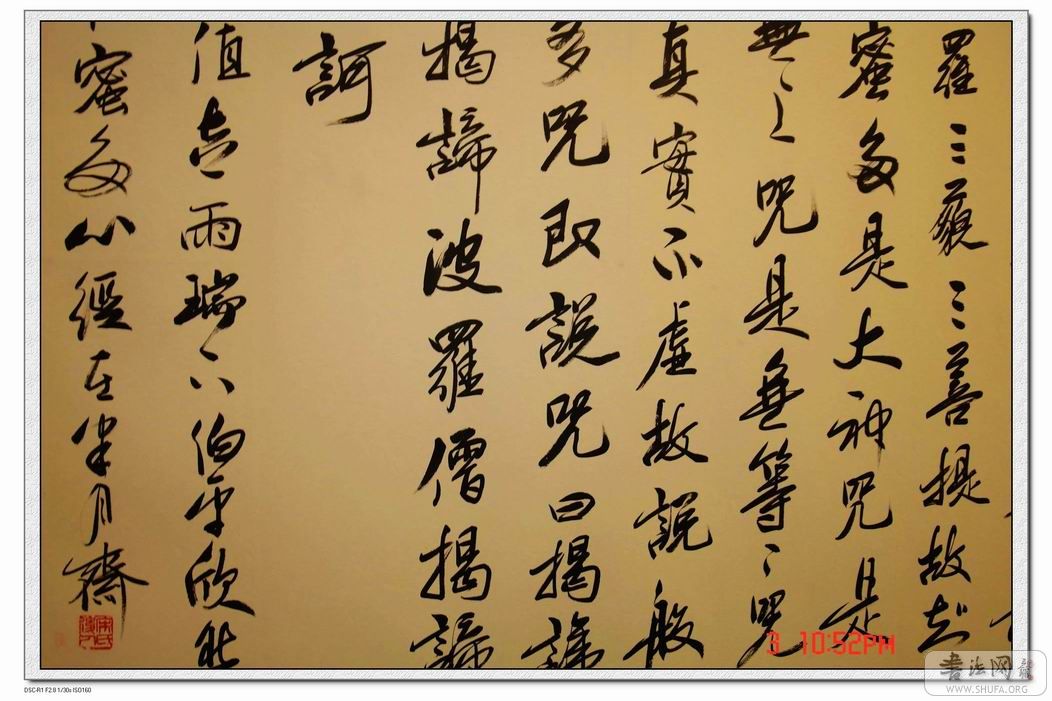 羅三藐三菩提故知
蜜多是大神咒是
無上咒是無等々咒
真實不虛故說般
多咒即說咒曰揭諦
揭諦波羅僧揭諦
訶
值吉雨瑞下伯平欣
蜜多心經在半月齋
3 10:52PM
书法网
WWW.SHUFA.ORG
DSC-R1 F2.8 1/30s ISO160